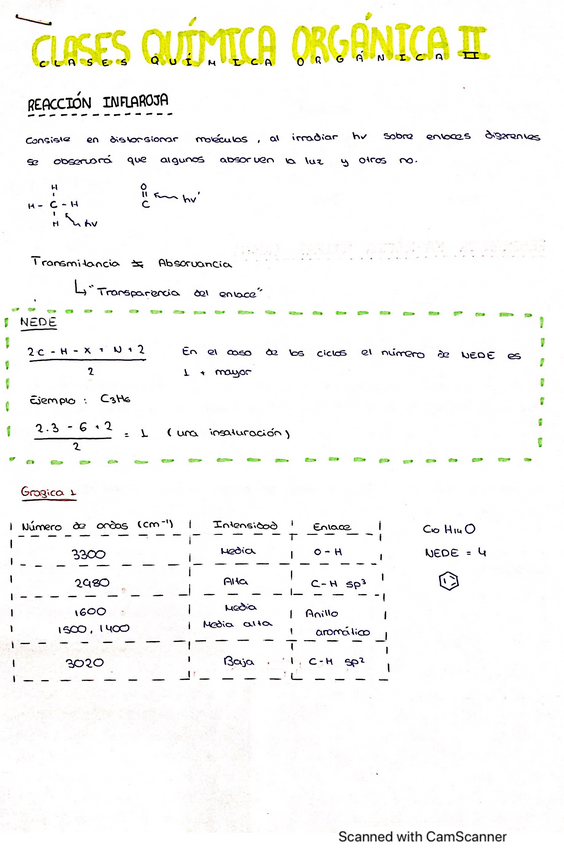 CLASES QUÍMICA ORGÁNICA II
CLASES QUÍMICA ORGÁNICA II
REACCIÓN INFLAROJA
Consiste en distorsionar moléculas, al irradiar hv sobre enlaces diferentes
se observará que algunos absorven la luz y otros no.
H
H - C - H
H hv
O
C hv'
Transmitancia ≒ Absorvancia
↳ "Transparencia del enlace"
NEDE
2C - H - X + N + 2
2
En el caso de los ciclos el número de NEDE es
1 + mayor
Ejemplo : C3H6
2.3 - 6 + 2 = 1 (una insaturación)
2
Grafica 1
Número de ondas (cm-1) Intensidad Enlace
3300 Media O-H
2980 Alta C-H sp3
1600 Media Anillo
1500, 1400 Media alta aromático
3020 Baja C-H sp2
C10 H14 O
NEDE = 4
Scanned with CamScanner